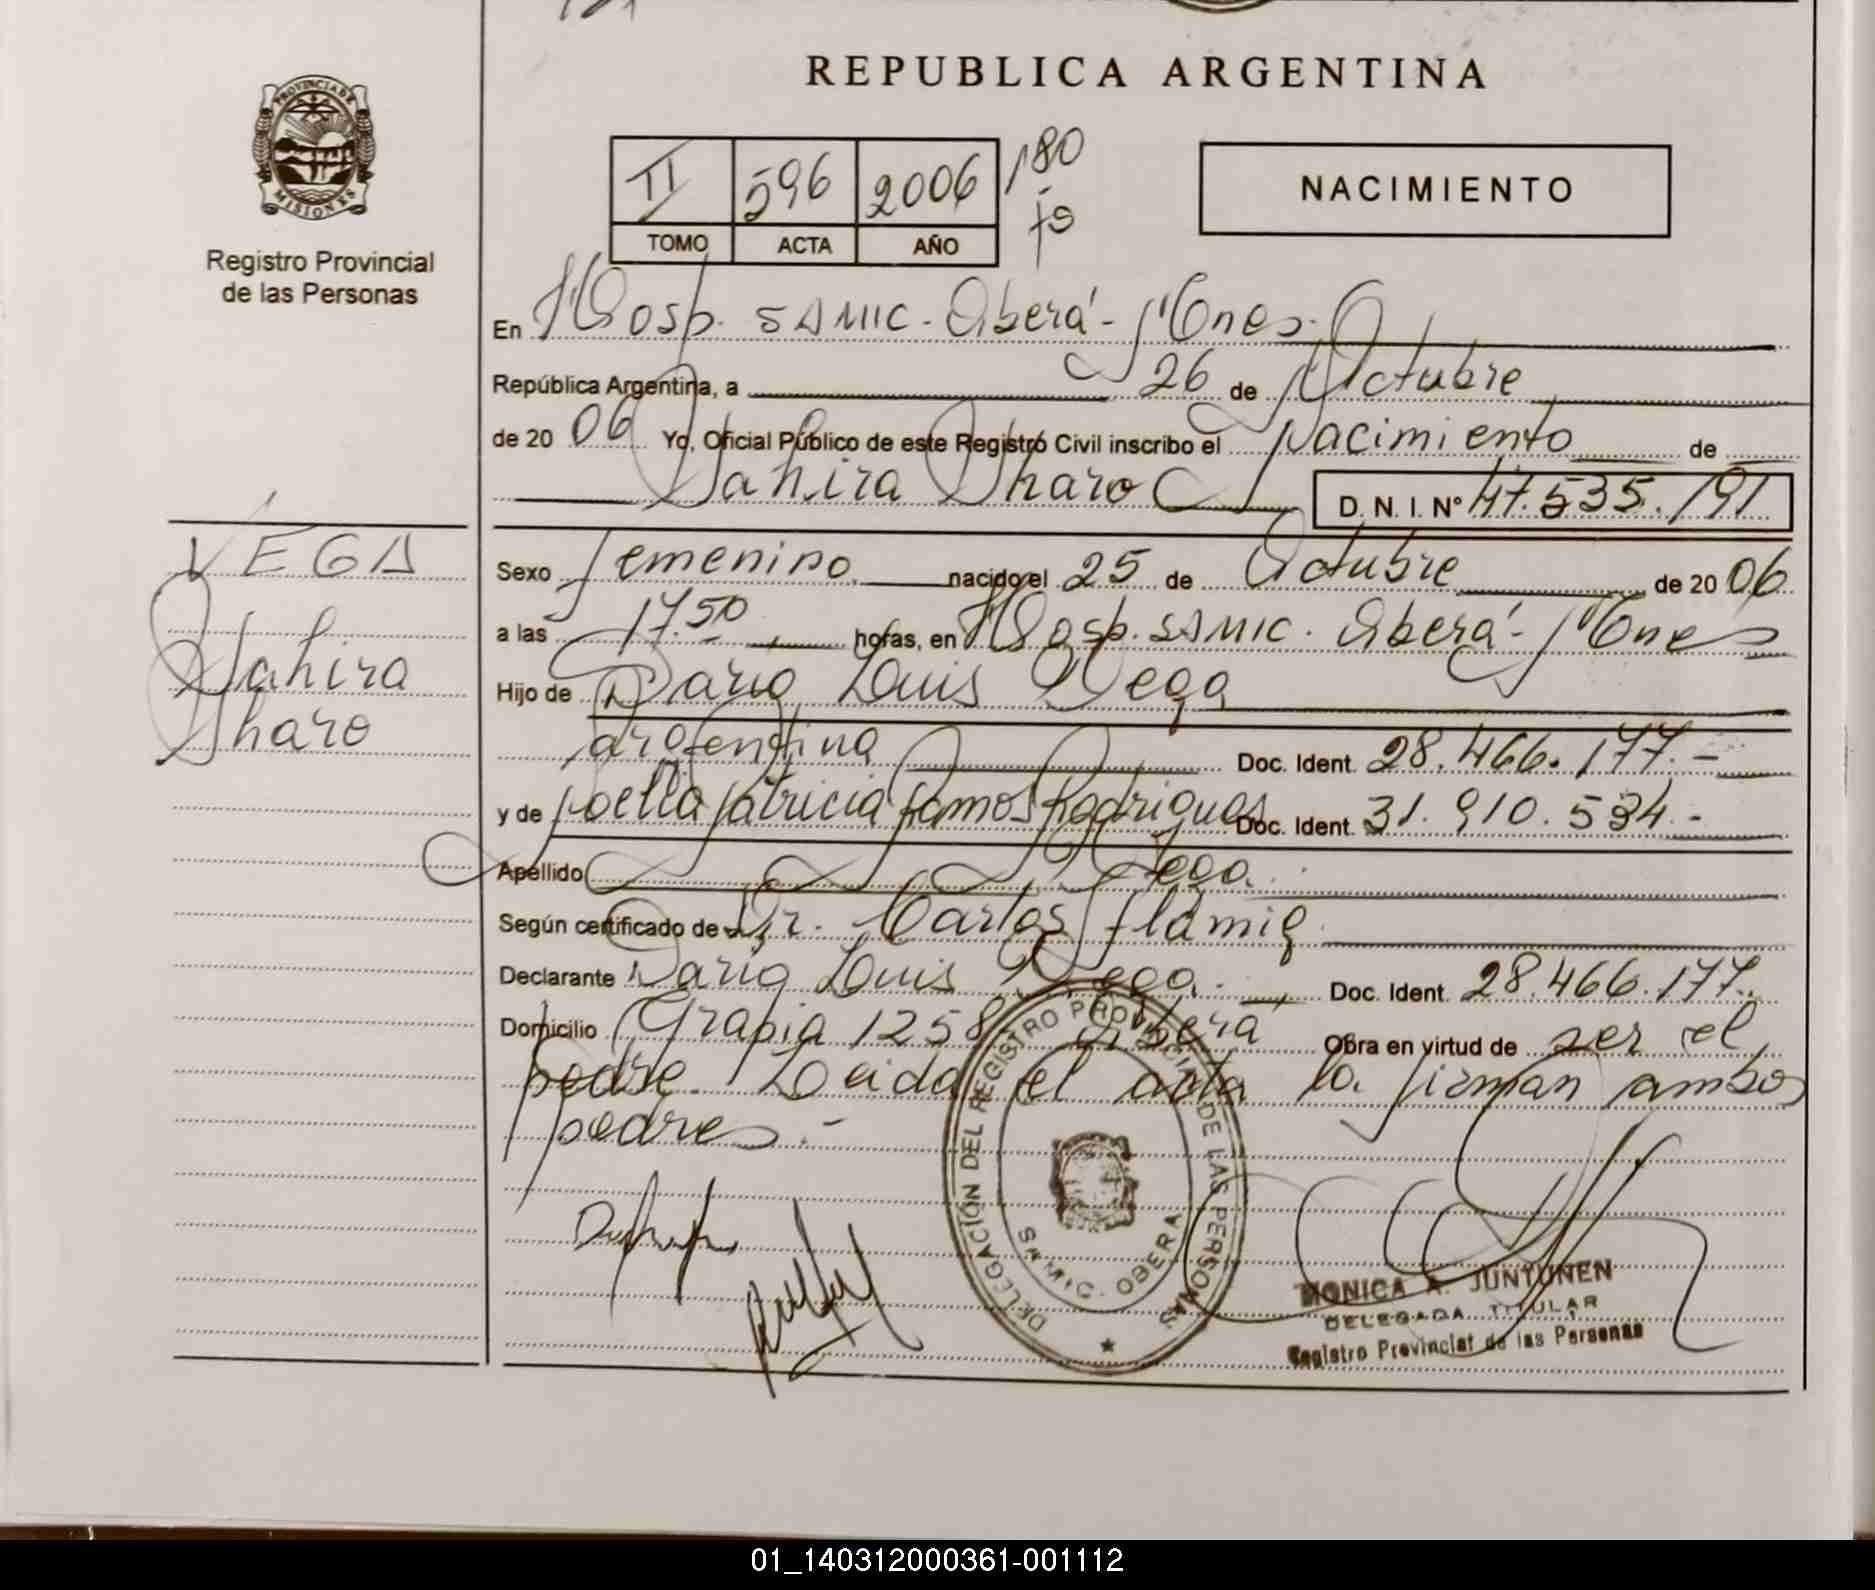 REPUBLICA ARGENTINA
PROVINCIA DE
MISIONES
Registro Provincial
de las Personas
II 596 2006 180
TOMO ACTA AÑO
NACIMIENTO
En Hosp. SAMIC - Oberá - Mnes.
República Argentina, a 26 de Octubre
de 20 06 Yo, Oficial Público de este Registro Civil inscribo el Nacimiento de
Sharo D. N. I. Nº 47.535.191
VEGA
Sexo femenino nacido el 25 de Octubre de 20 06
a las 17.50 horas, en Hosp. SAMIC. Oberá - Mnes
Sharo
Hijo de Dario Luis Vega
argentina Doc. Ident. 28.466.177.-
y de Patricia Ramos Rodrigues Doc. Ident. 31.910.534.-
Apellido Vega.
Según certificado de Dr. Carlos Flamig
Declarante Dario Luis Vega.- Doc. Ident. 28.466.177.
Domicilio 1258 Oberá Obra en virtud de ser el
padre. Leida el acta la firman ambos
padres.-
DELEGACIÓN DEL REGISTRO PROVINCIAL DE LAS PERSONAS
OBERA
MONICA A. JUNYUNEN
DELEGADA TITULAR
Registro Provincial de las Personas
01_140312000361-001112